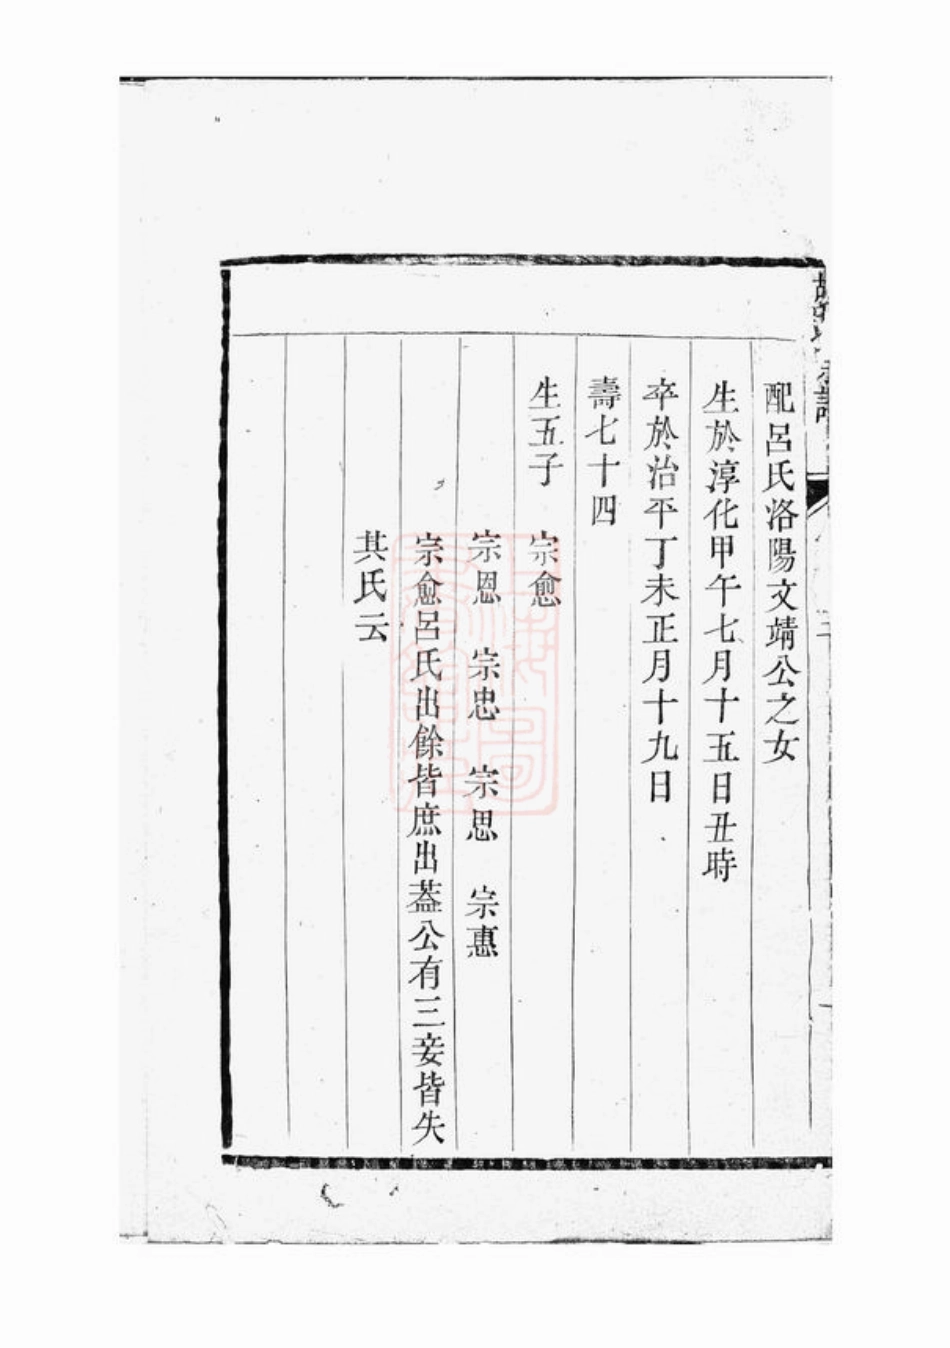 配呂氏洛陽文靖公之女
生於淳化甲午七月十五日丑時
卒於治平丁未正月十九日
壽七十四
生五子 宗愈
宗恩 宗忠 宗思 宗惠
宗愈呂氏出餘皆庶出葢公有三妾皆失
其氏云